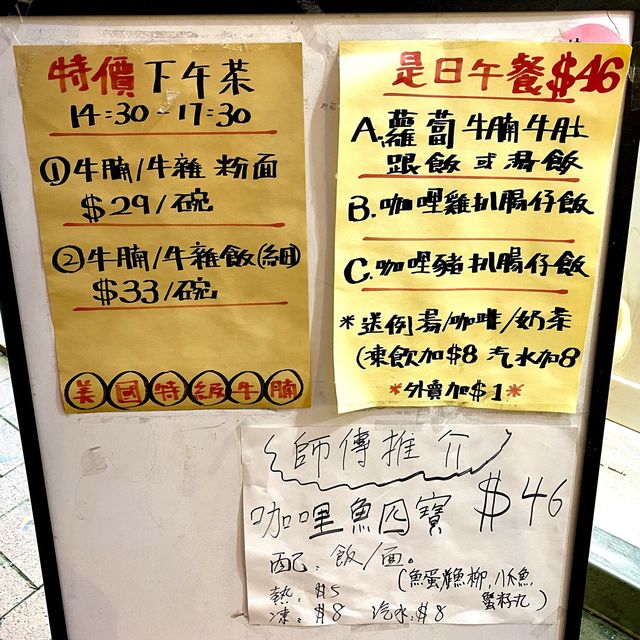 特價下午茶
14:30-17:30
①牛腩/牛雜粉面
$29/碗
②牛腩/牛雜飯(細)
$33/碗
美國特級牛腩
是日午餐$46
A.蘿蔔牛腩牛肚
跟飯或湯飯
B.咖哩雞扒腸仔飯
C.咖哩豬扒腸仔飯
*送例湯/咖啡/奶茶
(凍飲加$8 汽水加8
*外賣加$1*
師傅推介
咖哩魚四寶 $46
配:飯/面。
(魚蛋,燶魚柳,八爪魚,
蟹籽丸)
熱:$5
凍:$8 汽水:$8